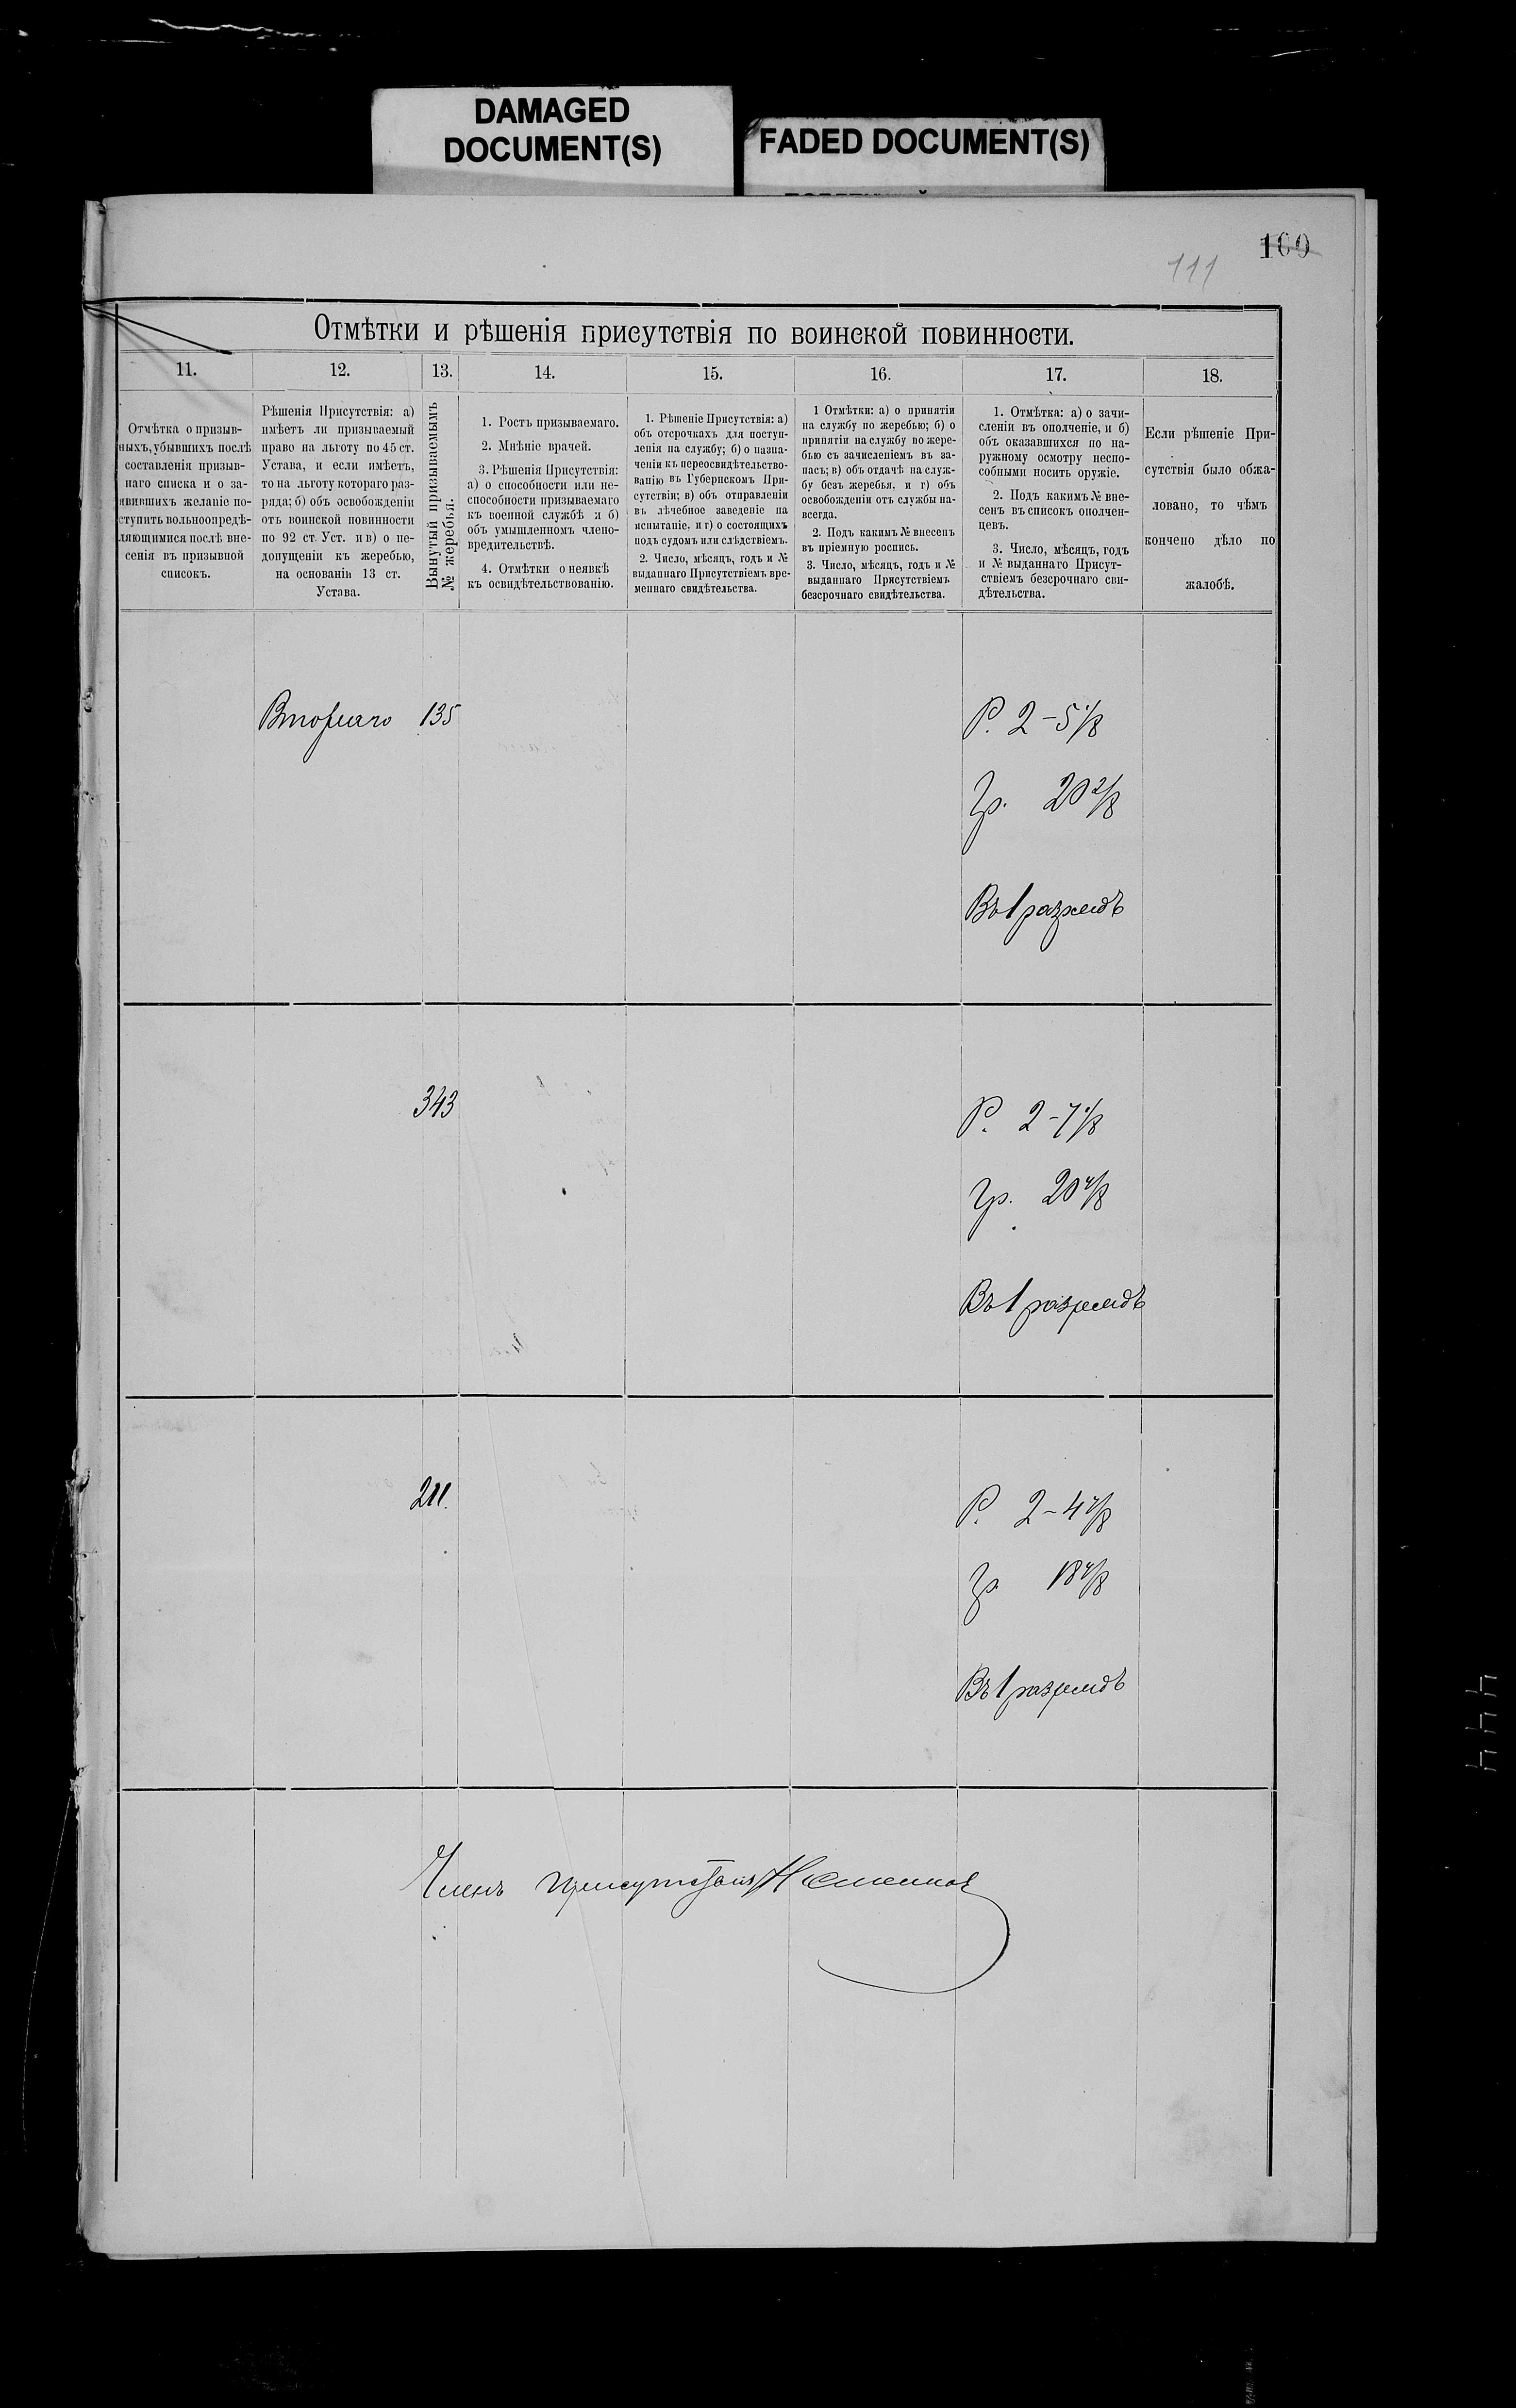 DAMAGED
DOCUMENT(S)
FADED DOCUMENT(S)
111
Отмѣтки и рѣшенія присутствія по воинской повинности.
11.
12.
13.
14.
15.
16.
17.
18.
Отмѣтка о призыв-
ныхъ, убывшихъ послѣ
составленія призыв-
наго списка и о за-
явившихъ желаніе по-
ступить вольноопредѣ-
ляющимися послѣ вне-
сенія въ призывной
списокъ.
Рѣшенія Присутствія: а)
имѣетъ ли призываемый
право на льготу по 45 ст.
Устава, и если имѣетъ,
то на льготу котораго раз-
ряда; б) объ освобожденіи
отъ воинской повинности
по 92 ст. Уст. и в) о не-
допущеніи къ жеребью,
на основаніи 13 ст.
Устава.
Вынутый призываемымъ
№ жеребья.
1. Ростъ призываемаго.
2. Мнѣніе врачей.
3. Рѣшенія Присутствія:
а) о способности или не-
способности призываемаго
къ военной службѣ и б)
объ умышленномъ члено-
вредительствѣ.
4. Отмѣтки о неявкѣ
къ освидѣтельствованію.
1. Рѣшеніе Присутствія: а)
объ отсрочкахъ для поступ-
ленія на службу; б) о назна-
ченіи къ переосвидѣтельство-
ванію въ Губернскомъ При-
сутствіи; в) объ отправленіи
въ лѣчебное заведеніе на
испытаніе, и г) о состоящихъ
подъ судомъ или слѣдствіемъ.
2. Число, мѣсяцъ, годъ и №
выданнаго Присутствіемъ вре-
меннаго свидѣтельства.
1 Отмѣтки: а) о принятіи
на службу по жеребью; б) о
принятіи на службу по жере-
бью съ зачисленіемъ въ за-
пасъ; в) объ отдачѣ на служ-
бу безъ жеребья, и г) объ
освобожденіи отъ службы на-
всегда.
2. Подъ какимъ № внесенъ
въ пріемную роспись.
3. Число, мѣсяцъ, годъ и №
выданнаго Присутствіемъ
безсрочнаго свидѣтельства.
1. Отмѣтка: а) о зачи-
сленіи въ ополченіе, и б)
объ оказавшихся по на-
ружному осмотру неспо-
собными носить оружіе.
2. Подъ какимъ № вне-
сенъ въ списокъ ополчен-
цевъ.
3. Число, мѣсяцъ, годъ
и № выданнаго Присут-
ствіемъ безсрочнаго сви-
дѣтельства.
Если рѣшеніе При-
сутствія было обжа-
ловано, то чѣмъ
кончено дѣло по
жалобѣ.
Втораго 135
Р. 2-5 1/8
Гр. 20 2/8
Въ 1 разрядъ
343
Р. 2-7 1/8
Гр. 20 4/8
Въ 1 разрядъ
211.
Р. 2-4 7/8
Гр 18 4/8
Въ 1 разрядъ
Членъ присутствія